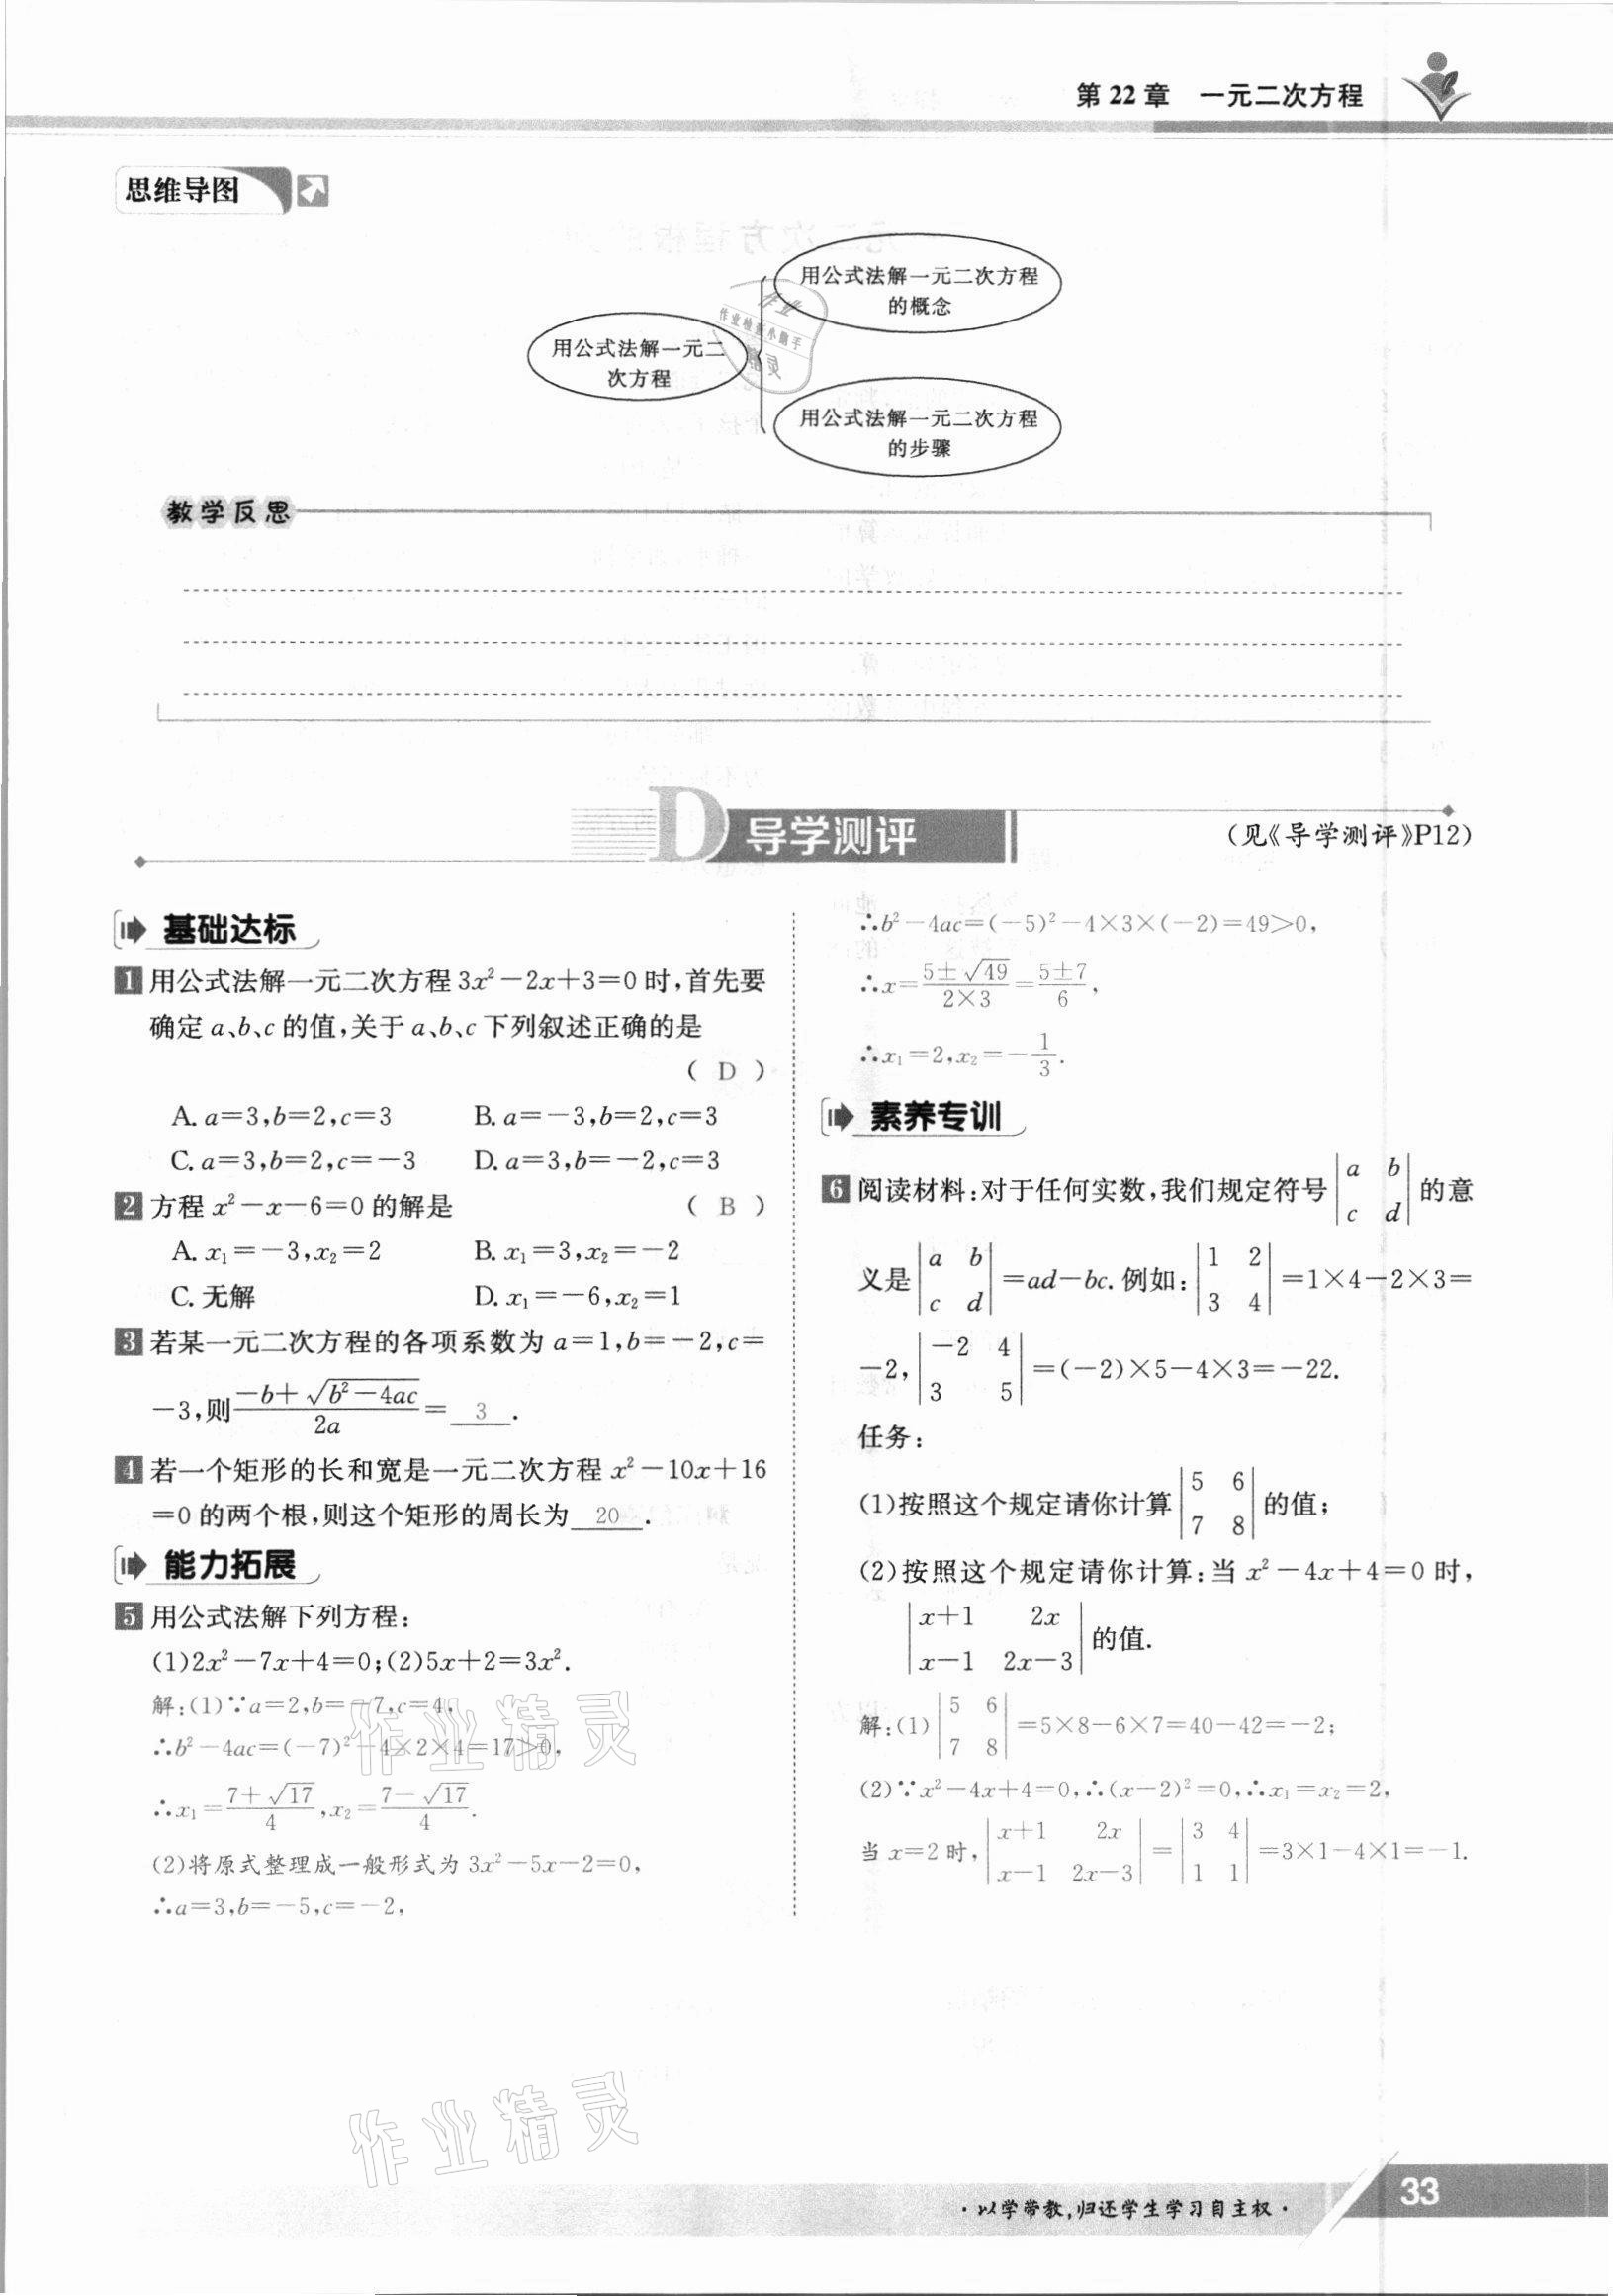 第 22 章　一元二次方程
思维导图
用公式法解一元二次方程
的概念
用公式法解一元二
次方程
用公式法解一元二次方程
的步骤
教学反思
D 导学测评
(见《导学测评》P12)
基础达标
1 用公式法解一元二次方程 3x²－2x＋3＝0 时,首先要
确定 a、b、c 的值,关于 a、b、c 下列叙述正确的是
( D )
A. a＝3,b＝2,c＝3　B. a＝－3,b＝2,c＝3
C. a＝3,b＝2,c＝－3　D. a＝3,b＝－2,c＝3
2 方程 x²－x－6＝0 的解是　( B )
A. x₁＝－3,x₂＝2　B. x₁＝3,x₂＝－2
C. 无解　D. x₁＝－6,x₂＝1
3 若某一元二次方程的各项系数为 a＝1,b＝－2,c＝
－3,则 (－b＋√(b²－4ac))/2a ＝ 3 .
4 若一个矩形的长和宽是一元二次方程 x²－10x＋16
＝0 的两个根,则这个矩形的周长为 20 .
能力拓展
5 用公式法解下列方程:
(1)2x²－7x＋4＝0;(2)5x＋2＝3x².
解:(1)∵a＝2,b＝－7,c＝4,
∴b²－4ac＝(－7)²－4×2×4＝17>0,
∴x₁＝(7＋√17)/4,x₂＝(7－√17)/4.
(2)将原式整理成一般形式为 3x²－5x－2＝0,
∴a＝3,b＝－5,c＝－2,
∴b²－4ac＝(－5)²－4×3×(－2)＝49>0,
∴x＝(5±√49)/(2×3)＝(5±7)/6,
∴x₁＝2,x₂＝－1/3.
素养专训
6 阅读材料:对于任何实数,我们规定符号 |a b; c d| 的意
义是 |a b; c d| ＝ad－bc. 例如: |1 2; 3 4| ＝1×4－2×3＝
－2, |－2 4; 3 5| ＝(－2)×5－4×3＝－22.
任务:
(1)按照这个规定请你计算 |5 6; 7 8| 的值;
(2)按照这个规定请你计算:当 x²－4x＋4＝0 时,
|x＋1 2x; x－1 2x－3| 的值.
解:(1) |5 6; 7 8| ＝5×8－6×7＝40－42＝－2;
(2)∵x²－4x＋4＝0,∴(x－2)²＝0,∴x₁＝x₂＝2,
当 x＝2 时, |x＋1 2x; x－1 2x－3| ＝ |3 4; 1 1| ＝3×1－4×1＝－1.
作业精灵
作业精灵
·以学带教,归还学生学习自主权·
33